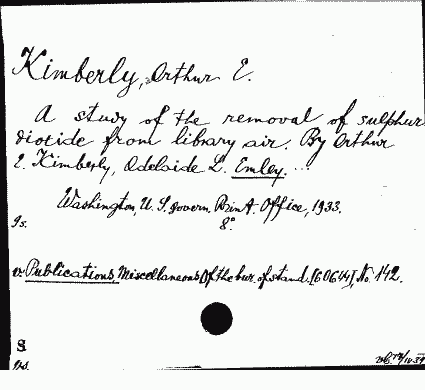 Kimberly, Arthur E.
A study of the removal of sulphur
dioxide from library air. By Arthur
E. Kimberly, Adelaide L. Emley. ...
Washington, U. S. govern. Print. Office, 1933.
8°
v. Publications, Miscellaneous Of the bur. of stand. [60644], No. 142.
S